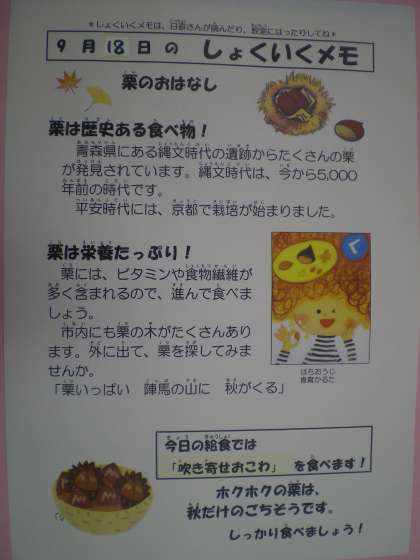 ＊しょくいくメモは、日直さんが読んだり、教室にはったりしてね＊
９月18日の しょくいくメモ
栗のおはなし
栗は歴史ある食べ物！
青森県にある縄文時代の遺跡からたくさんの栗
が発見されています。縄文時代は、今から5,000
年前の時代です。
平安時代には、京都で栽培が始まりました。
栗は栄養たっぷり！
栗には、ビタミンや食物繊維が
多く含まれるので、進んで食べま
しょう。
市内にも栗の木がたくさんあり
ます。外に出て、栗を探してみま
せんか。
「栗いっぱい 陣馬の山に 秋がくる」
く
はちおうじ
食育かるた
今日の給食では
「吹き寄せおこわ」 を食べます！
ホクホクの栗は、
秋だけのごちそうです。
しっかり食べましょう！